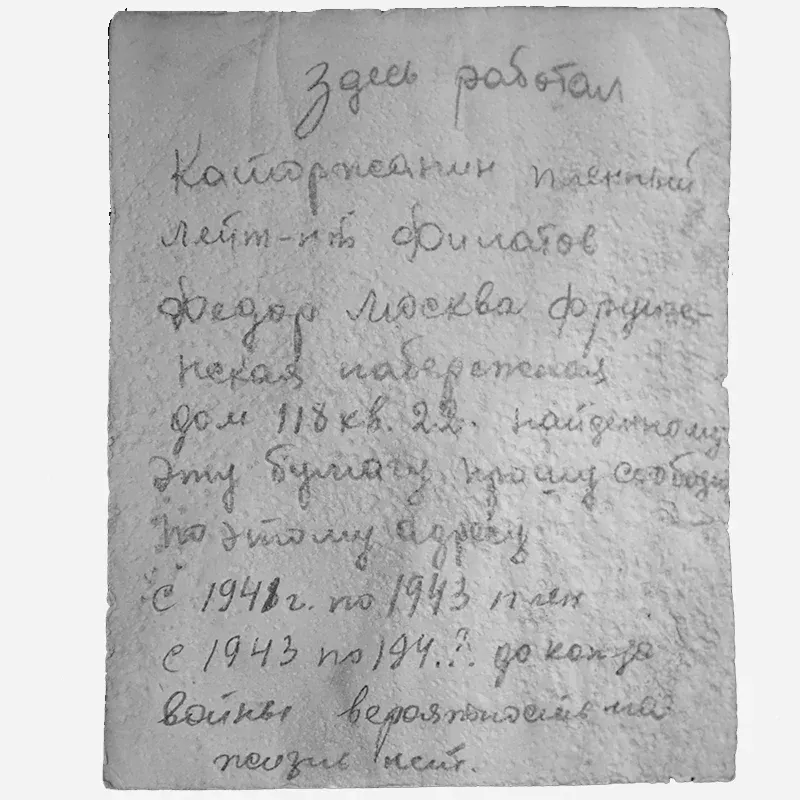 Здесь работал
Каторжанин пленный
лейт-нт Филатов
Федор Москва Фрунзе-
нская набережная
дом 118 кв. 22. найденному
эту бумагу прошу сообщить
по этому адресу
с 1941 г. по 1943 плен
с 1943 по 194..?. до конца
войны вероятность на
жизнь нет.